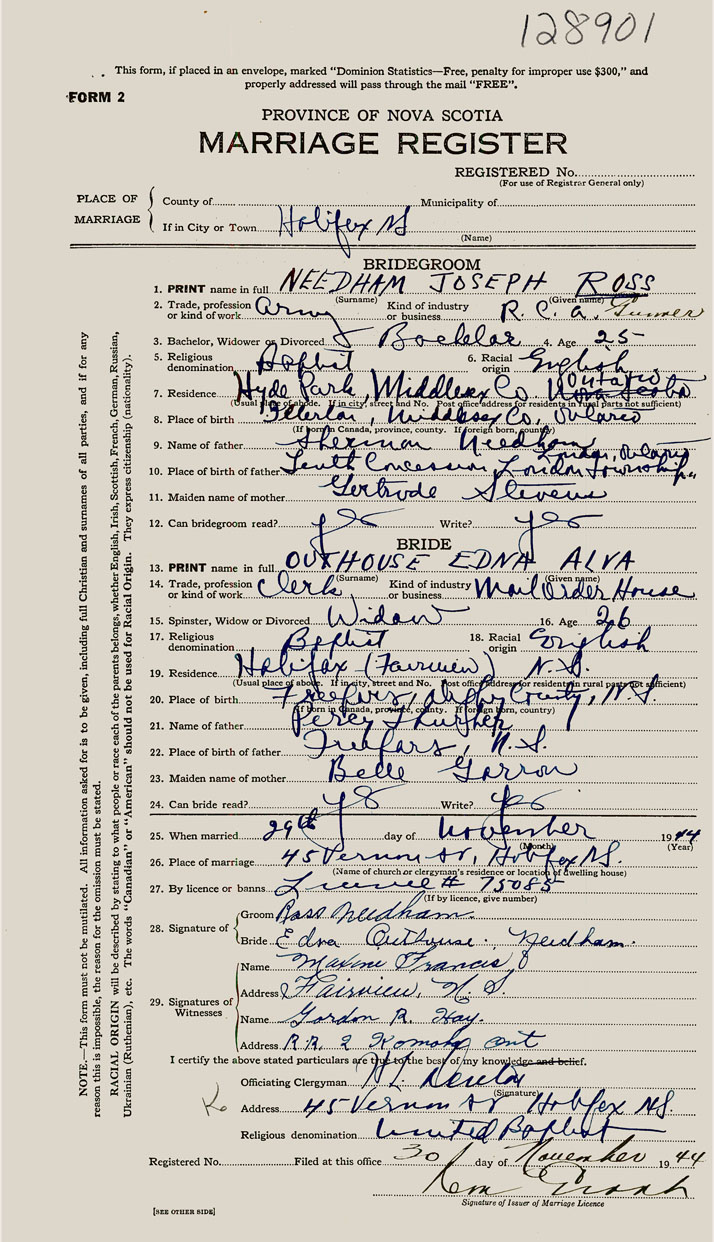 128901
This form, if placed in an envelope, marked "Dominion Statistics—Free, penalty for improper use $300," and
properly addressed will pass through the mail "FREE".
FORM 2
PROVINCE OF NOVA SCOTIA
MARRIAGE REGISTER
REGISTERED No.
(For use of Registrar General only)
PLACE OF MARRIAGE
County of Municipality of
If in City or Town Halifax NS
(Name)
BRIDEGROOM
1. PRINT name in full NEEDHAM JOSEPH ROSS
(Surname) (Given name)
2. Trade, profession or kind of work Army Kind of industry or business R. C. A. Gunner
3. Bachelor, Widower or Divorced Bachelor 4. Age 25
5. Religious denomination Baptist 6. Racial origin English
7. Residence Hyde Park, Middlesex Co. Nova Scotia Ontario
(Usual place of abode. If in city, street and No. Post office address for residents in rural parts not sufficient)
8. Place of birth Middlesex Co, Ontario
(If born in Canada, province, county. If foreign born, country)
9. Name of father Sherman Needham
London, Ontario
10. Place of birth of father Tenth Concession London Township
11. Maiden name of mother Gertrude Stevens
12. Can bridegroom read? yes Write? yes
BRIDE
13. PRINT name in full OUTHOUSE EDNA ALVA
(Surname) (Given name)
14. Trade, profession or kind of work Clerk Kind of industry or business Mail Order House
15. Spinster, Widow or Divorced Widow 16. Age 26
17. Religious denomination Baptist 18. Racial origin English
19. Residence Halifax (Fairview) N.S.
(Usual place of abode. If in city, street and No. Post office address for residents in rural parts not sufficient)
20. Place of birth Freeport, Digby County, N.S.
(If born in Canada, province, county. If foreign born, country)
21. Name of father Percy Thurber
22. Place of birth of father Freeport, N.S.
23. Maiden name of mother Belle Garron
24. Can bride read? yes Write? yes
25. When married 29th day of November 1944
(Month) (Year)
26. Place of marriage 45 Vernon St, Halifax NS.
(Name of church or clergyman's residence or location of dwelling house)
27. By licence or banns License # 75085
(If by licence, give number)
28. Signature of
Groom Ross Needham.
Bride Edna Outhouse Needham.
29. Signatures of Witnesses
Name Maxine Francis
Address Fairview, N. S.
Name Gordon R. Hay.
Address R.R. 2 Komoka ont
I certify the above stated particulars are true to the best of my knowledge and belief.
Officiating Clergyman H.L.
(Signature)
Address 45 Vernon St Halifax NS.
Religious denomination United Baptist
Registered No. Filed at this office 30 day of November 1944
Signature of Issuer of Marriage Licence
[SEE OTHER SIDE]
NOTE.—This form must not be mutilated. All information asked for is to be given, including full Christian and surnames of all parties, and if for any
reason this is impossible, the reason for the omission must be stated.
RACIAL ORIGIN will be described by stating to what people or race each of the parents belongs, whether English, Irish, Scottish, French, German, Russian,
Ukrainian (Ruthenian), etc. The words "Canadian" or "American" should not be used for Racial Origin. They express citizenship (nationality).